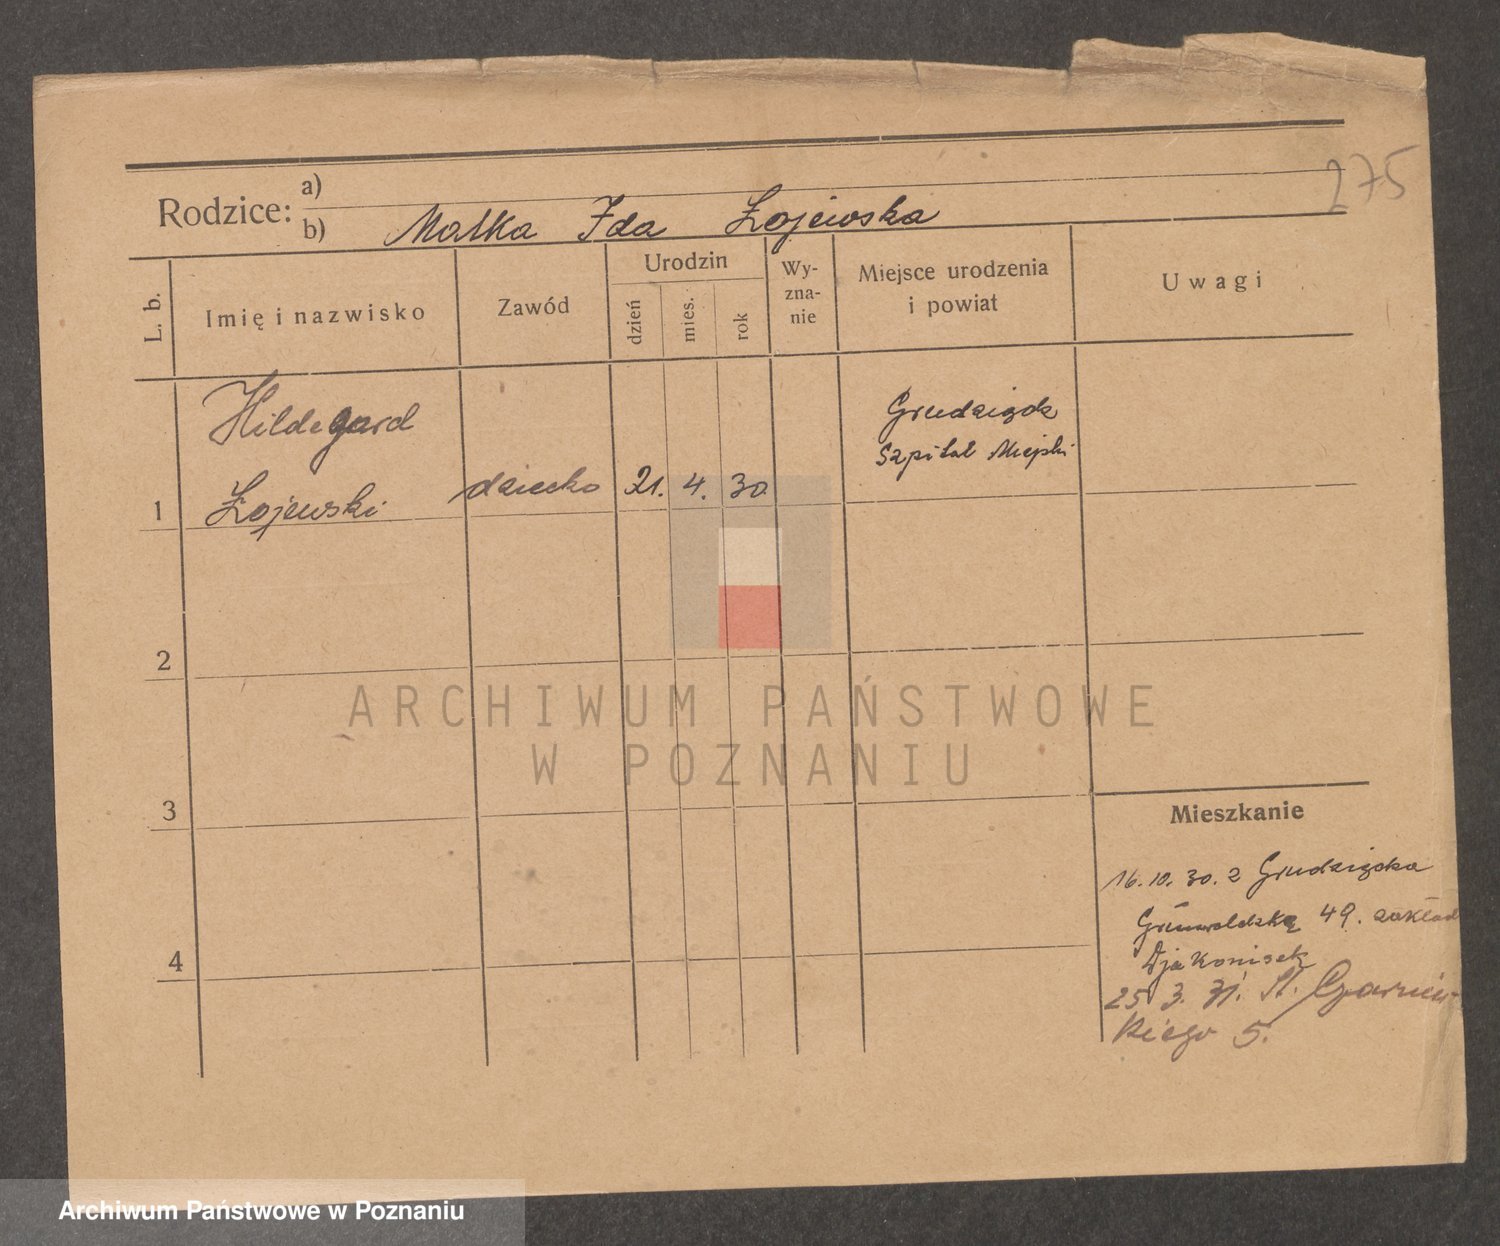 275
Rodzice:
a)
b) Matka Ida Łojewska
L. b.
Imię i nazwisko
Zawód
Urodzin
dzień
mies.
rok
Wy-
zna-
nie
Miejsce urodzenia
i powiat
Uwagi
Hildegard
Łojewski
1
dziecko
21. 4. 30
Grudziądz
Szpital Miejski
2
3
4
ARCHIWUM PAŃSTWOWE
W POZNANIU
Mieszkanie
16.10.30. z Grudziądza
Grunwaldzka 49. zakład
Djakonisek
25 3. 31. Czarniec-
kiego 5.
Archiwum Państwowe w Poznaniu